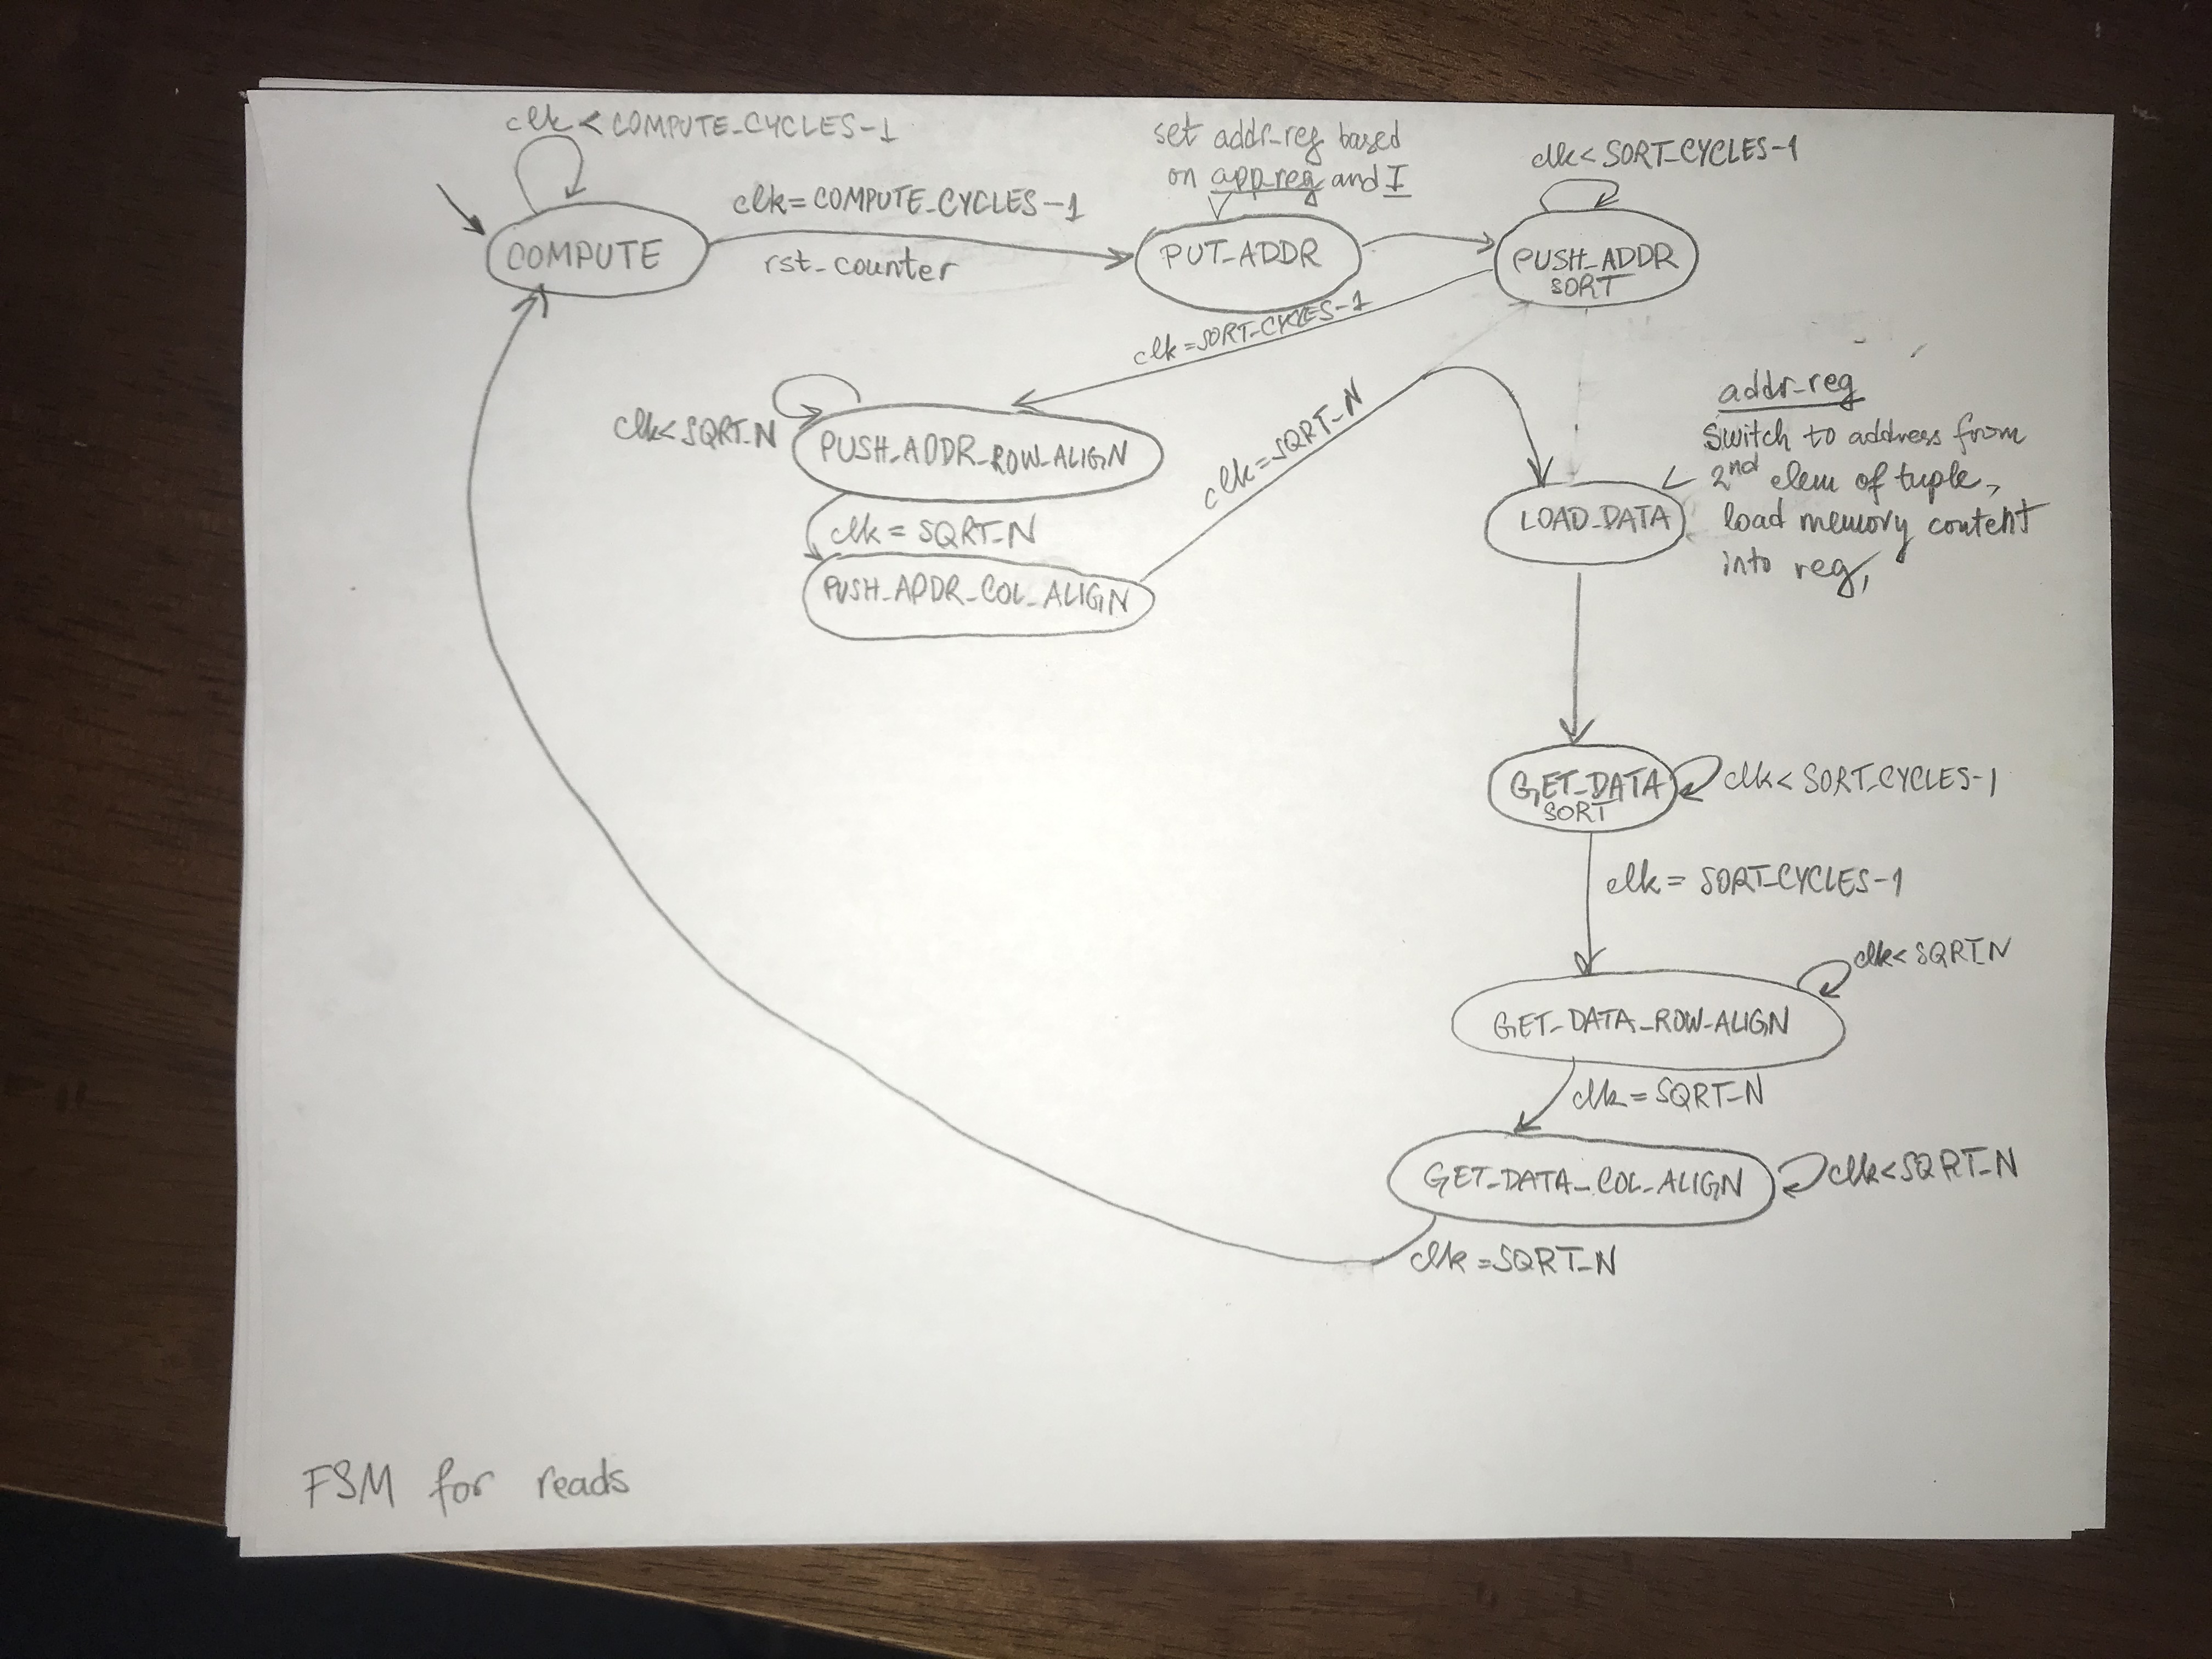 clk < COMPUTE_CYCLES-1
COMPUTE
clk=COMPUTE_CYCLES-1
rst_counter
set addr_reg based
on app_reg and I
PUT_ADDR
clk < SORT_CYCLES-1
PUSH_ADDR
SORT
clk=SORT_CYCLES-1
clk<SQRT_N
PUSH_ADDR_ROW_ALIGN
clk = SQRT_N
PUSH_ADDR_COL_ALIGN
clk=SQRT_N
LOAD_DATA
addr_reg
switch to address from
2nd elem of tuple,
load memory content
into reg,
GET_DATA
SORT
clk < SORT_CYCLES-1
clk = SORT_CYCLES-1
GET_DATA_ROW_ALIGN
clk<SQRT_N
clk = SQRT_N
GET_DATA_COL_ALIGN
clk<SQRT_N
clk =SQRT_N
FSM for reads